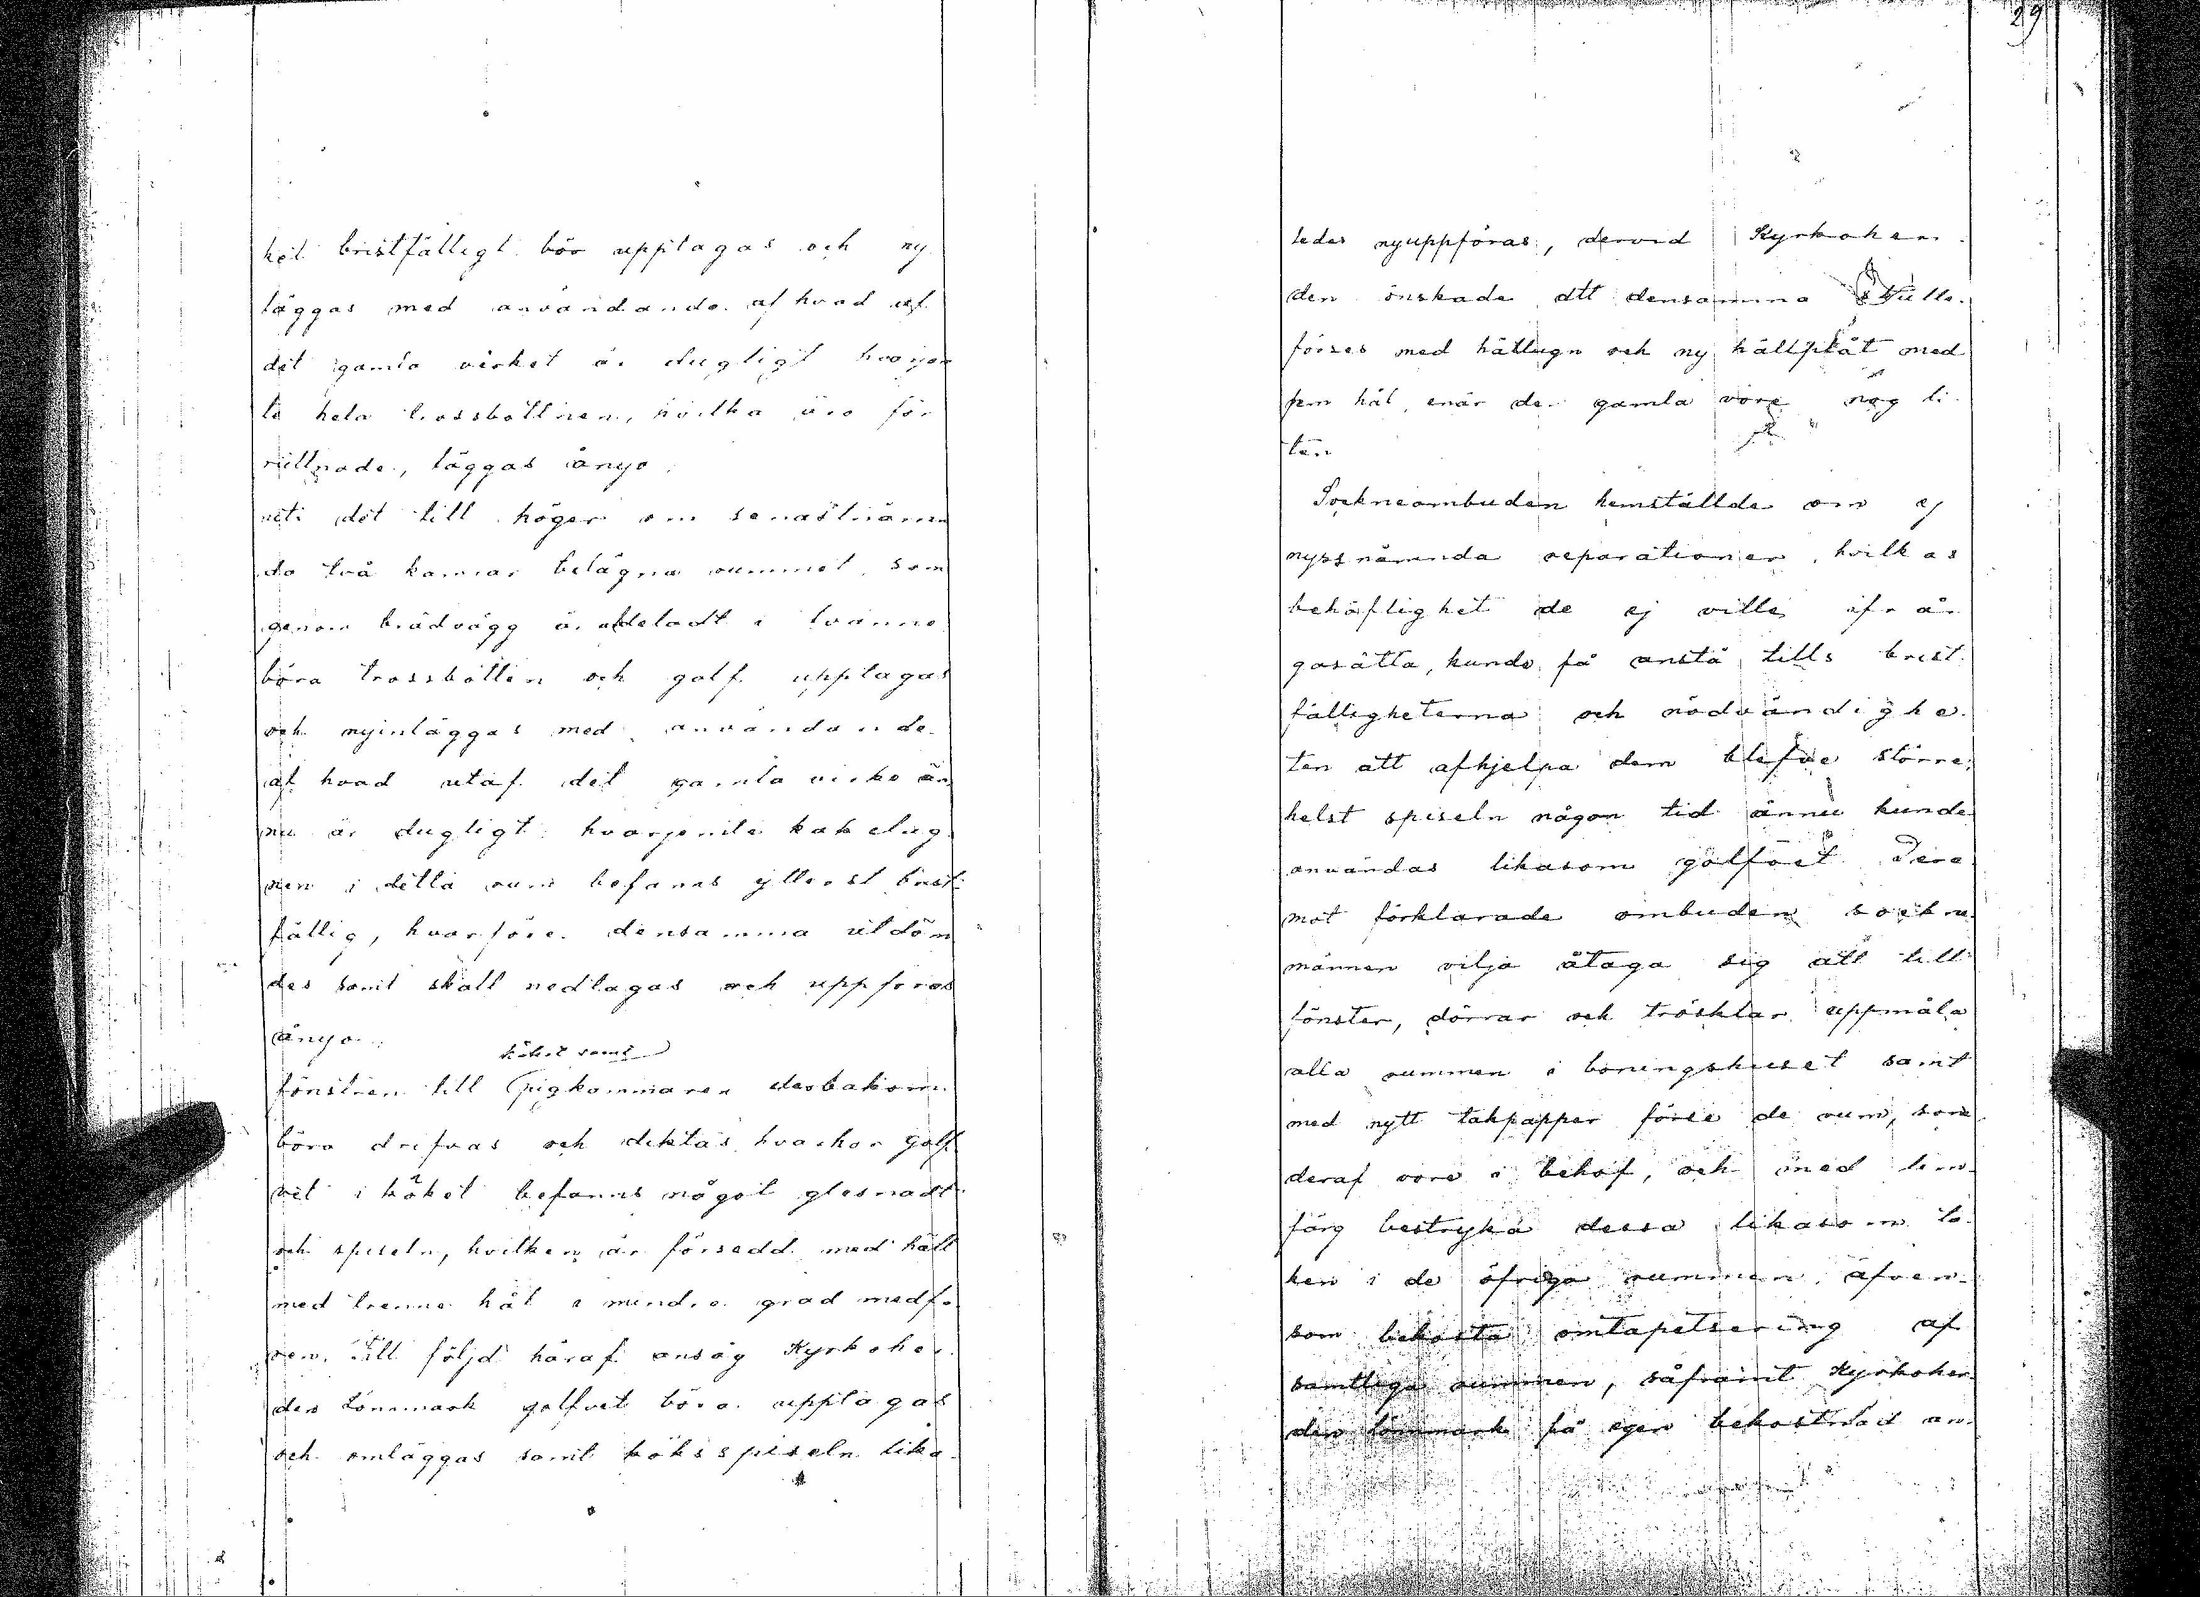 het bristfälligt bör upptagas och ny
läggas med användande af hvad af
det gamla virket är dugligt hvarjem
te hela trossbottnen, hvilka äro för
ruttnade, läggas ånyo.
uti det till höger om senastnämn
da två kamrar belägna rummet, som
genom brädvägg är afdeladt i tvänne
böra trossbotten och golf upptagas
och nyinläggas med användande
af hvad utaf det gamla virke än
nu är dugligt hvarjemte kakelug
nen i detta rum befanns ytterst brist
fällig, hvarföre densamma utdöm
des samt skall nedtagas och uppföras
ånyo.
köket samt
fönstren till pigkammaren derbakom
böra drifvas och diktas hvarhos golf
vet i köket befanns något glesnadt
och spiseln, hvilken är försedd med häll
med trenne hål i mindre grad medfa
ren. Till följd häraf ansåg Kyrkoher
den Lönnmark golfvet böra upptagas
och omläggas samt köksspiseln lika
29
ledes nyuppföras, dervid Kyrkoher
den önskade att densamma skulle
förses med hällugn och ny hällplåt med
fem hål, enär den gamla vore nog li
ten
Sockneombuden hemställde om ej
nyssnämnda reparationer, hvilkas
behöflighet de ej ville ifrån
gasätta, kunde få anstå tills brist
fälligheterna och nödvändighe
ten att afhjelpa dem blefve större,
helst spiseln någon tid ännu kunde
användas likasom golfvet. Dere
mot förklarade ombuden sockne
männen vilja åtaga sig att till
fönster, dörrar och trösklar uppmåla
alla rummen i boningshuset samt
med nytt takpapper förse de rum, som
deraf vore i behof, och med lim
färg bestryka dessa likasom ta
ken i de öfriga rummen, äfven
som bekosta omtapetsering af
samtliga rummen, såframt Kyrkoher
den Lönnmark på egen bekostnad an